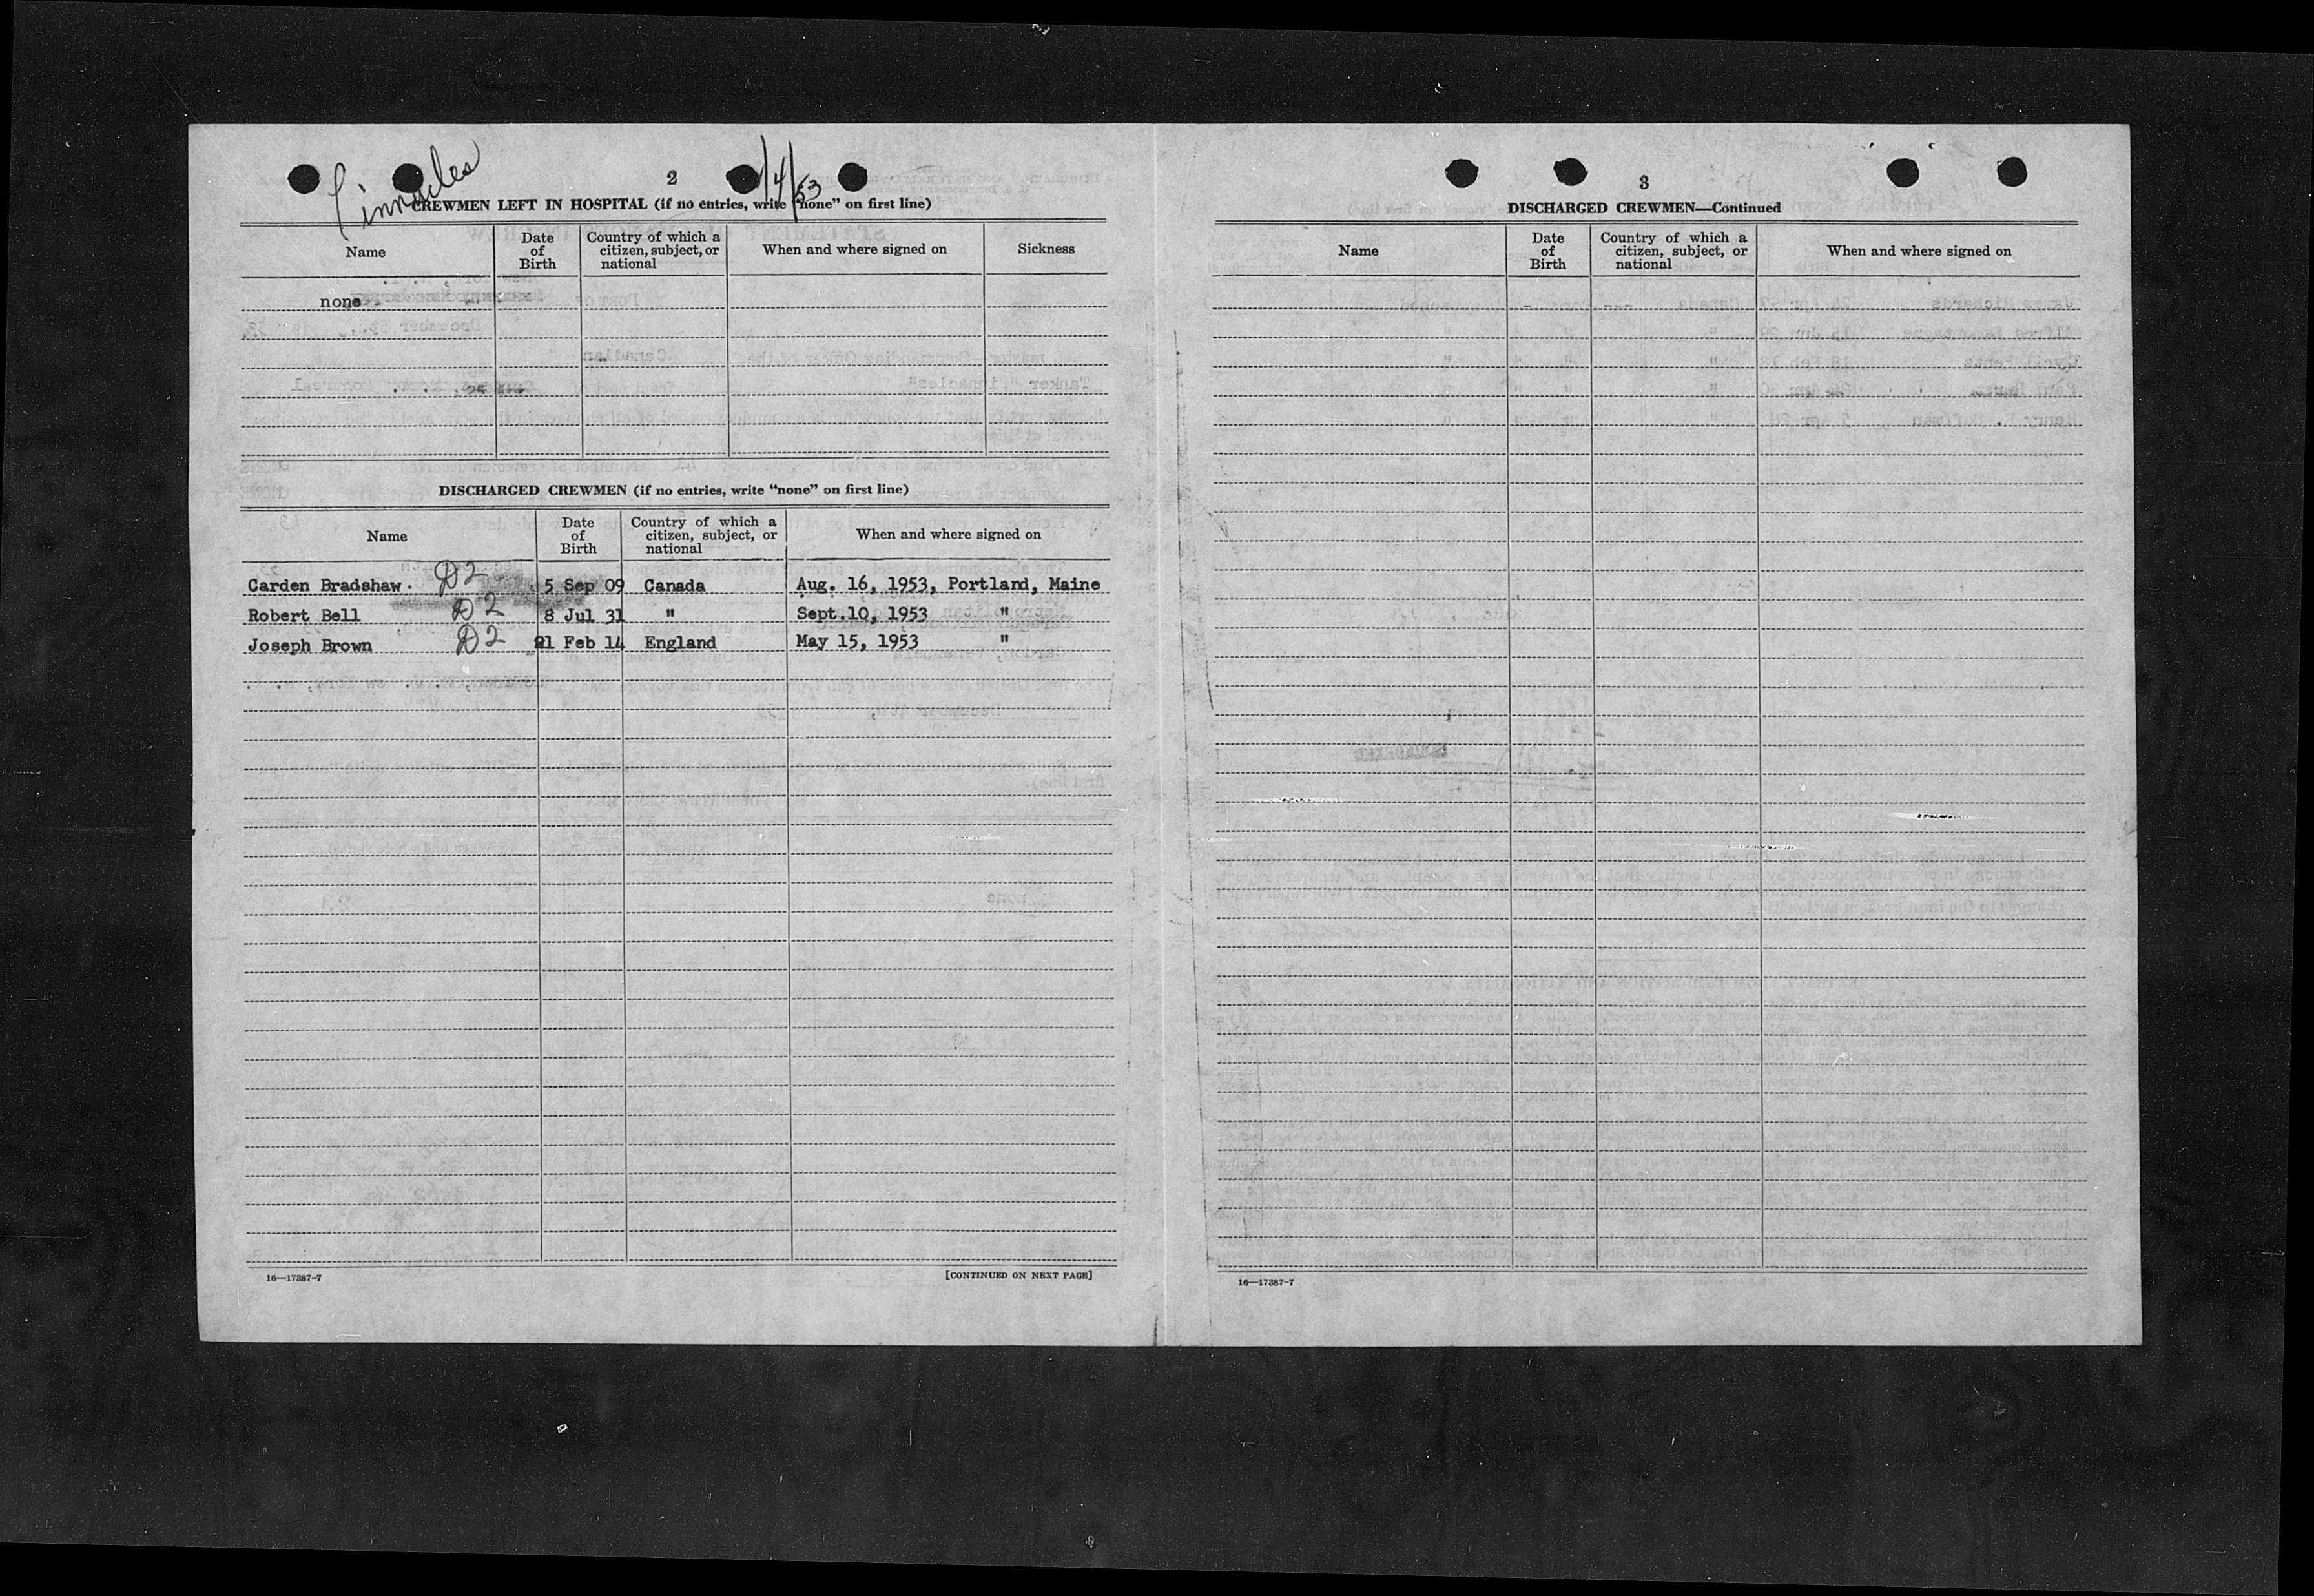 2
/4/53
CREWMEN LEFT IN HOSPITAL (if no entries, write "none" on first line)
Name
Date of Birth
Country of which a citizen, subject, or national
When and where signed on
Sickness
none
DISCHARGED CREWMEN (if no entries, write "none" on first line)
Name
Date of Birth
Country of which a citizen, subject, or national
When and where signed on
Carden Bradshaw. D2 5 Sep 09 Canada Aug. 16, 1953, Portland, Maine
Robert Bell D2 8 Jul 31 " Sept.10, 1953 "
Joseph Brown D2 21 Feb 14 England May 15, 1953 "
16—17387-7
[CONTINUED ON NEXT PAGE]
3
DISCHARGED CREWMEN—Continued
Name
Date of Birth
Country of which a citizen, subject, or national
When and where signed on
16—17387-7